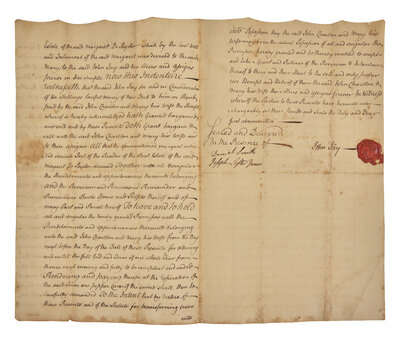 Estate of the said Margaret De Ryder which by the last will
and Testament of the said Margaret was devised to the said
Mary to the said John Jay and his Heirs and Assigns
forever in fee simple Now this Indenture
Witnesseth that the said John Jay for and in Consideration
of five shillings Current money of New York to him in Hand
paid by the said John Charlton and Mary his Wife the Receipt
whereof is hereby acknowledged hath Granted bargained
and sold and by these Presents Doth Grant bargain &
sell unto the said John Charlton and Mary his Wife and
to their assigns All that the aforementioned one equal undivi-
ded seventh Part of the Residue of the Real Estate of the said
Margaret De Ryder deceased Together with all & singular
the Hereditaments and appurtenances thereunto belonging
and the Reversion and Reversions Remainder and
Remainders Rents Issues and Profits thereof and of
every Part and Parcel thereof To have and to hold
all and singular the hereby granted Premises with the
Hereditaments and appurtenances thereunto belonging
unto the said John Charlton and Mary his Wife from the Day
next before the Day of the Date of these Presents for & during
and untill the full End and Term of one whole Year from
thence next ensuing and fully to be compleat and ended
Rendering and paying therefor at the expiration of
the said Term one Pepper Corn if the same shall then be
lawfully demanded To the Intent that by Virtue of
these Presents and of the Statute for transferring uses
into
into Possession they the said John Charlton and Mary his
Wife may be in the actual Possession of all and singular the
Premises hereby granted and be thereby enabled to accept
and take a Grant and Release of the Reversion & Inheritance
thereof to them and their Heirs to the sole and only proper
use Benefit and Behoof of them the said John Charlton &
Mary his Wife their Heirs and Assigns forever In Witness
whereof the Parties to these Presents have hereunto inter-
changeably set their Hands and Seals the Day and Year
first above written
Sealed and Delivered
in the Presence of
Joseph
John Jay